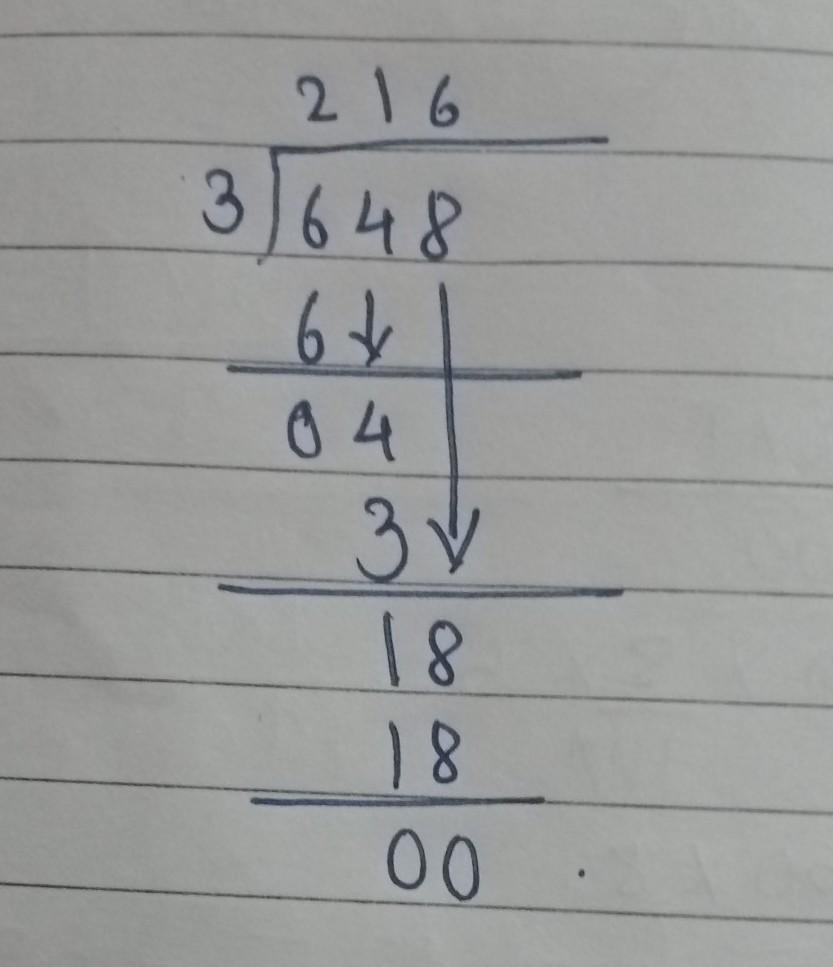 2 1 6
3 6 4 8
6 ↓
0 4
3 ↓
1 8
1 8
0 0 .